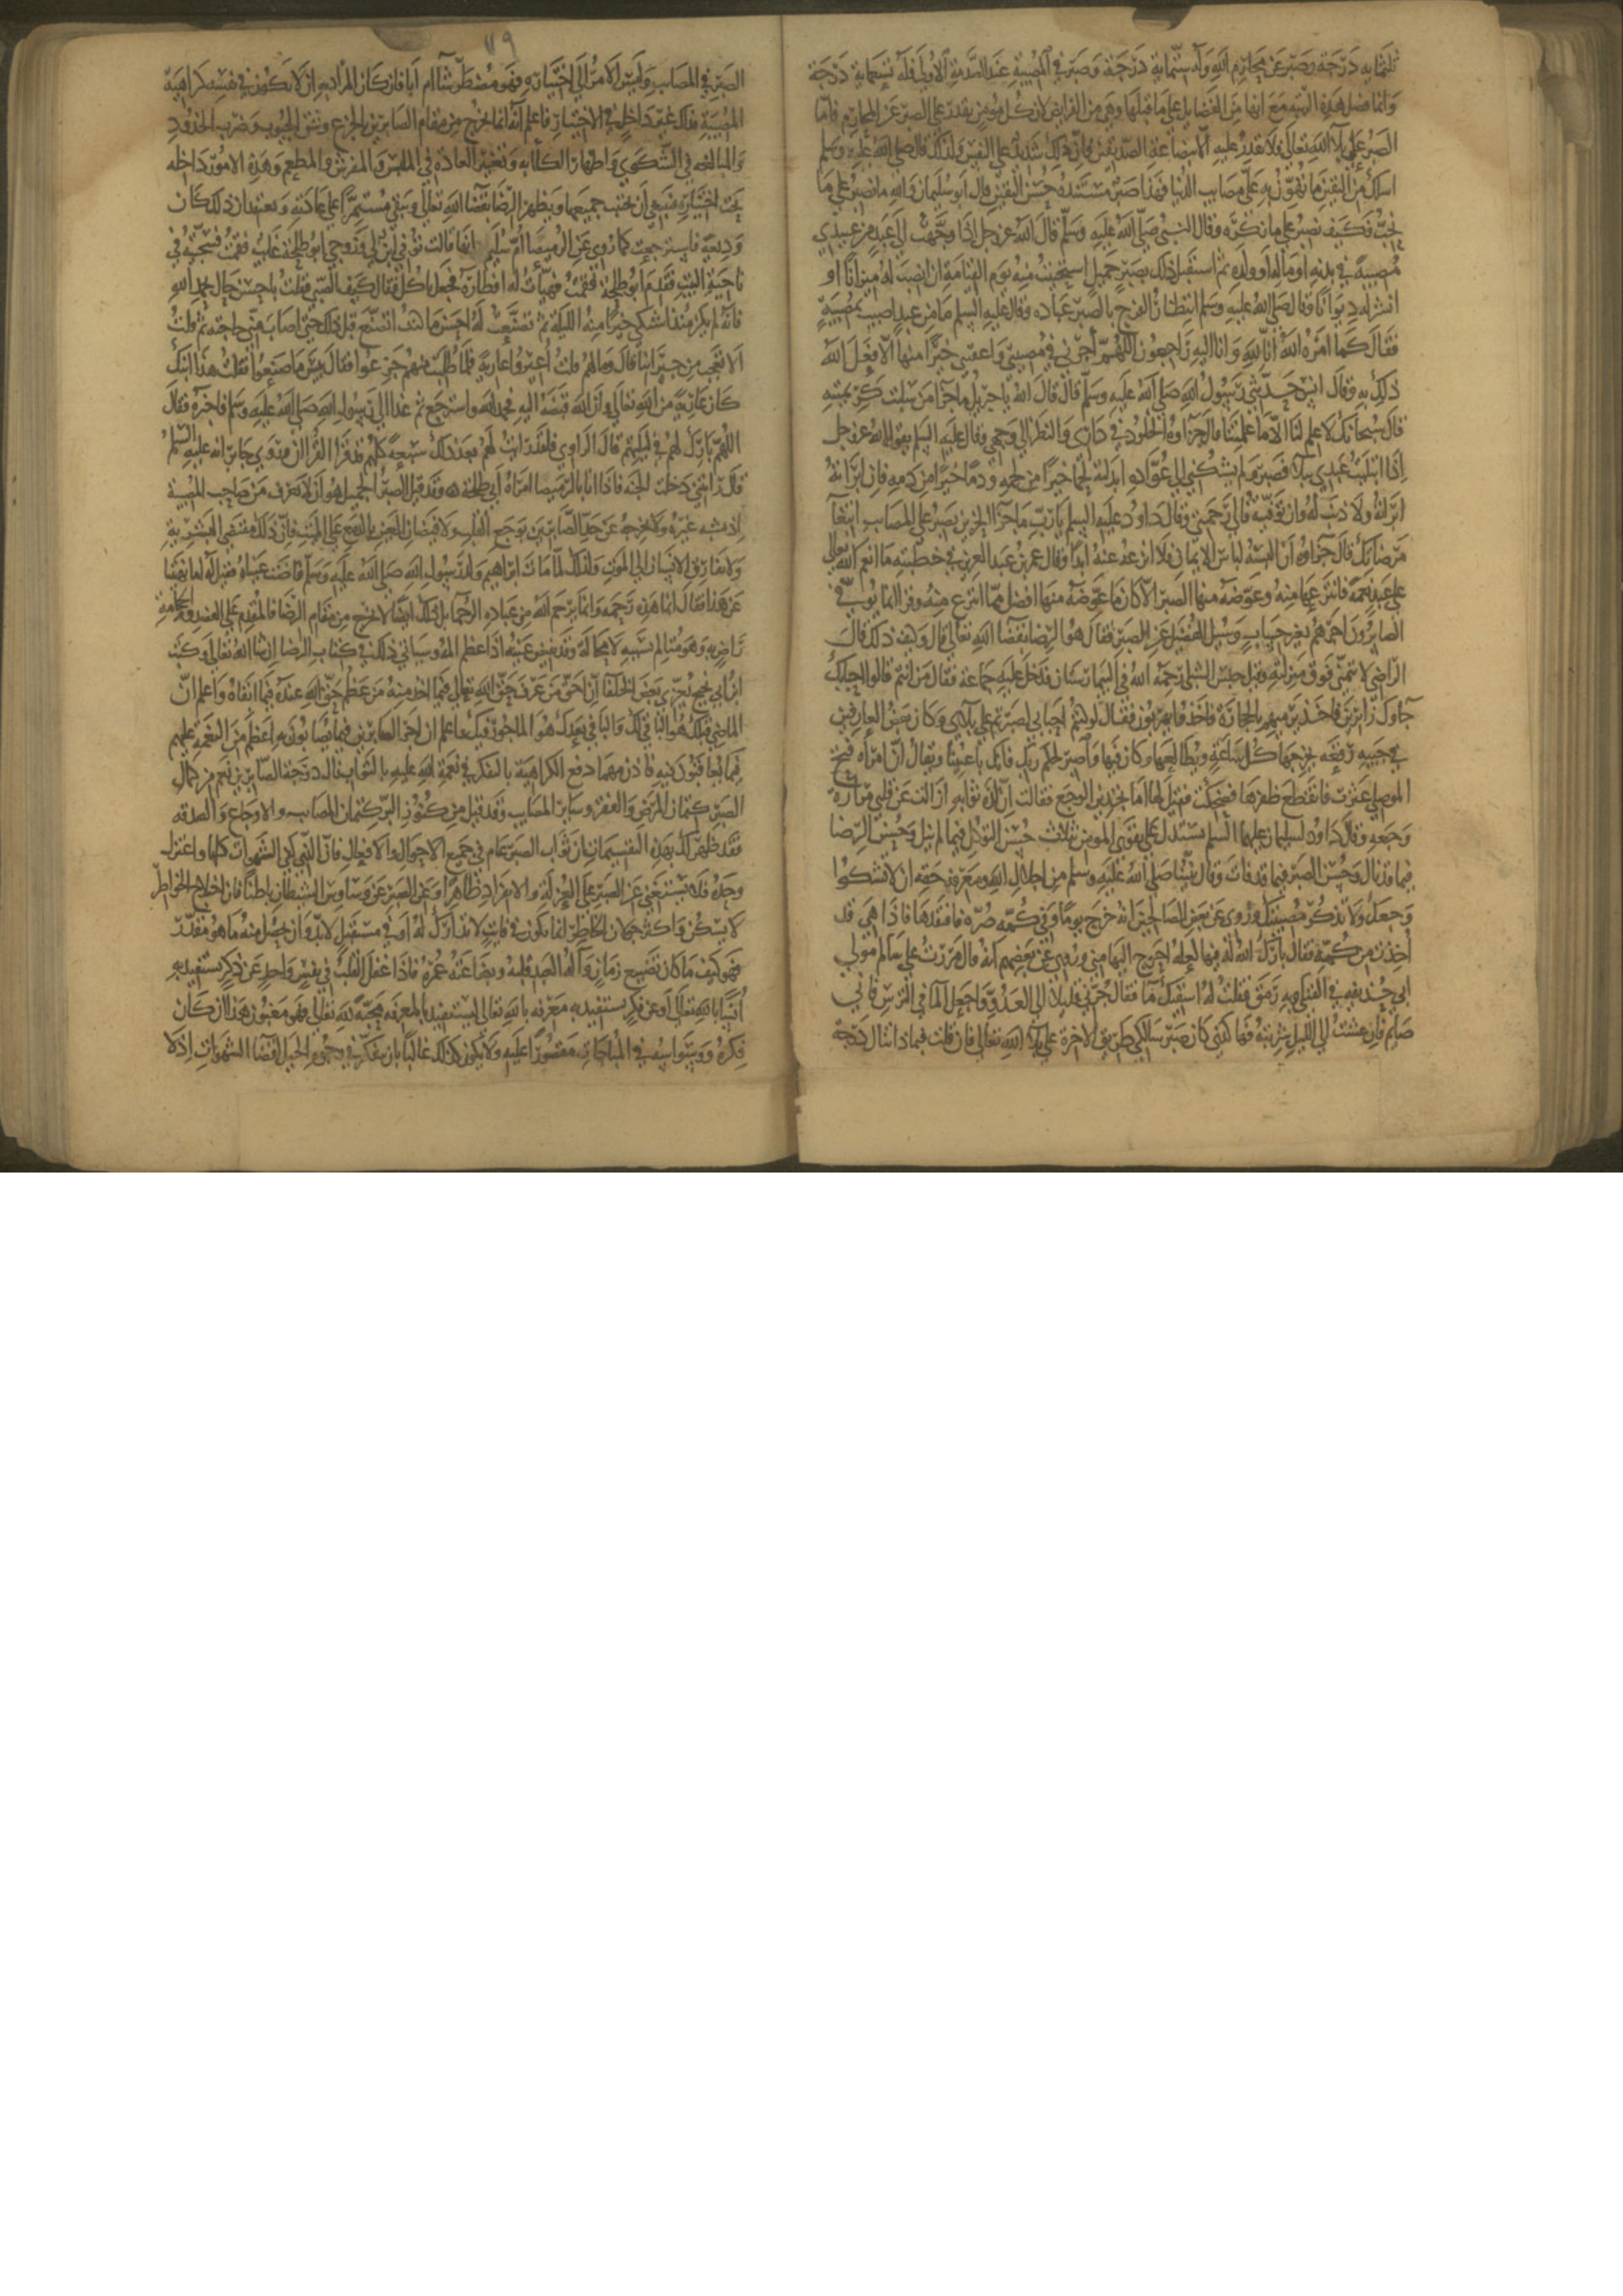 ثلثمايه درجة وصبر عن محارم الله وله ستماية درجة وصبر في المصيبة عند الصدمة الأولى فله تسعماية درجة
وانما فضل هذه الرتبه مع انها من الفضايل على ما قبلها وهي من الفرايض لان كل مؤمن يقدر على الصبر عن المحارم فاما
الصبر على بلا الله تعالى فلا يقدر عليه الا ببضاعة الصديقين فان ذلك شديد على النفس ولذلك قال صلى الله عليه وسلم
اسالك من اليقين ما تهون به على مصايب الدنيا فهذا صبر مستنده حسن اليقين وقال ابو سليمان والله ما نصبر على ما
نحب فكيف نصبر على ما نكره وقال النبي صلى الله عليه وسلم قال الله عز وجل اذا وجهت الى عبد من عبيدي
مصيبة في بدنه او ماله او ولده ثم استقبل ذلك بصبر جميل استحييت منه يوم القيامة ان انصب له ميزانا او
انشر له ديوانا وقال صلى الله عليه وسلم انتظار الفرج بالصبر عباده وقال عليه السلم ما من عبد اصيب بمصيبة
فقال كما امره الله انا لله وانا اليه راجعون اللهم أجرني في مصيبتي واعقبني خيرا منها الا فعل الله
ذلك به وقال انس حدثني رسول الله صلى الله عليه وسلم قال قال الله يا جبريل ما جزا من سلبت كريمتيه
قال سبحانك لا علم لنا الا ما علمتنا قال جزاوه الخلود في داري والنظر الى وجهي وقال عليه السلم يقول الله عز وجل
اذا ابتليت عبدي ببلا فصبر ولم يشكني الى عواده ابدلته لحما خيرا من لحمه ودما خيرا من دمه فان ابراته
ابراته ولا ذنب له وان توفيته فالى رحمتي وقال داود عليه السلم يا رب ما جزا الحزين يصبر على المصايب ابتغا
مرضاتك قال جزاوه ان البسه لباس الايمان فلا انزعه عنه ابدا وقال عمر بن عبد العزيز في خطبته ما انعم الله تعالى
على عبد نعمة فانتزعها منه وعوضه منها الصبر الا كان ما عوضه منها افضل مما انتزع منه وقرا انما يوفى
الصابرون اجرهم بغير حساب وسيل الفضيل عن الصبر فقال هو الرضا بقضا الله تعالى قال وكيف ذلك قال
الراضي لا يتمنى فوق منزلته وقيل حبس الشبلي رحمه الله في المارستان فدخل عليه جماعة فقال من انتم قالوا احباك
جاوك زايرين فاخذ يرميهم بالحجارة فاخذوا يهربون فقال لو كنتم احباي لصبرتم على بلاي وكان بعض العارفين
في جيبه رقعه يخرجها كل ساعة ويطالعها وكان فيها واصبر لحكم ربك فانك باعيننا ويقال ان امراة فتح
الموصلي عثرت فانقطع ظفرها فضحكت فقيل لها اما تجدين الوجع فقالت ان لذة ثوابه ازالت عن قلبي مرارة
وجعه وقال داود لسليمان عليهما السلم يستدل على تقوى المومن بثلاث حسن التوكل فيما لم ينل وحسن الرضا
فيما قد نال وحسن الصبر فيما قد فات وقال نبينا صلى الله عليه وسلم من اجلال الله ومعرفة حقه ان لا تشكوا
وجعك ولا تذكر مصيبتك وروى عن بعض الصالحين انه خرج يوما وفي كمه صره فافتقدها فاذا هي قد
اخذت من كمه فقال بارك الله له فيها لعله احوج اليها مني وروي عن بعضهم انه قال مررت على سالم مولى
ابي حذيفه في القتلى وبه رمق فقلت له اسقيك ما فقال جرني قليلا الى العدو واجعل الما في الترس فاني
صايم فان عشت الى الليل شربته فهكذى كان صبر سالكي طريق الاخرة على بلا الله تعالى فان قلت فبماذا تنال درجة
١١٩
الصبر في المصايب وليس الامر الى اختياره فهو مضطر شا ام ابا فان كان المراد به ان لا تكون في نفسه كراهية
المصيبة فذلك غير داخل في الاختيار فاعلم انه انما يخرج من مقام الصابرين بالجزع وشق الجيوب وضرب الخدود
والمبالغه في الشكوى واظهار الكآبه وتغيير العادة في الملبس والمفرش والمطعم وهذه الامور داخله
تحت اختياره فينبغي ان يجتنب جميعها ويظهر الرضا بقضا الله تعالى ويبقى مستمرا على عادته ويعتقد ان ذلك كان
وديعة فاسترجعت كما روي عن الرميصا ام سليم انها قالت توفي ابن لي وزوجي ابو طلحة غايب فقمت فسجيته في
ناحية البيت فقدم ابو طلحة فقمت فهيأت له افطاره فجعل ياكل فقال كيف الصبي فقلت باحسن حال بحمد الله
فانه لم يكن منذ اشتكى خيرا منه الليلة ثم تصنعت له احسن ما كنت اتصنع قبل ذلك حتى اصاب مني حاجته ثم قلت
الا تعجب من جيراننا قال وما لهم قلت اعيروا عارية فلما طلبت منهم جزعوا فقال بيس ما صنعوا فقلت هذا ابنك
كان عارية من الله تعالى وان الله قبضه اليه فحمد الله واسترجع ثم غدا الى رسول الله صلى الله عليه وسلم فاخبره فقال
اللهم بارك لهم في ليلتهم قال الراوي فلقد رايت لهم بعد ذلك سبعة كلهم قد قرا القران وروى جابر انه عليه السلم
قال رايتني دخلت الجنه فاذا انا بالرميصا امراة ابي طلحة وقد قيل الصبر الجميل هو ان لا يعرف من صاحب المصيبة
اذ يشبه غيره ولا يخرجه عن حد الصابرين توجع القلب ولا فيضان العين بالدمع على الميت فان ذلك مقتضى البشرية
ولا يفارق الانسان الى الموت ولذلك لما مات ابراهيم ولد رسول الله صلى الله عليه وسلم فاضت عيناه فقيل له اما نهيتنا
عن هذا فقال انما هذه رحمه وانما يرحم الله من عباده الرحما بل ذلك ايضا لا يخرج من مقام الرضا فالمقدم على الفصد والحجامة
راض به وهو متالم بسببه لا محالة وقد تفيض عينه اذا عظم المه وسياتي ذلك في كتاب الرضا ان شا الله تعالى وكتب
ابن ابي نجيح يعزي بعض الخلفا ان احق من عرف حق الله تعالى فيما اخذ منه من عظم حق الله عنده فيما ابقاه واعلم ان
الماضي قبلك هو الباقي لك والباقي بعدك هو الماجور فيك واعلم ان اجر الصابرين فيما يصابون به اعظم من النعمة عليهم
فيما يعافون فيه فاذن مهما دفع الكراهية بالتفكر في نعمة الله عليه بالثواب نال درجة الصابرين نعم من كمال
الصبر كتمان المرض والفقر وساير المصايب وقد قيل من كنوز البر كتمان المصايب والاوجاع والصدقه
فقد ظهر لك بهذه التقسيمات ان وثواب الصبر عام في جميع الاحوال والافعال فان الذي كفي الشهوات كلها واعتزل
وحده فلا يستغني عن الصبر على العزلة والانفراد ظاهرا وعن الصبر عن وساوس الشيطان باطنا فان اختلاج الخواطر
لا يسكن واكثر جولان الخاطر انما يكون في فايت لا تدارك له او في مستقبل لا بد وان يحصل منه ما هو مقدر
فهو كيف ما كان تضييع زمان وآلة العبد قلبه وبضاعته عمره فاذا غفل القلب في نفس واحد عن ذكر يستفيد به
أنسا بالله تعالى او عن فكر يستفيد به معرفه بالله تعالى ليستفيد بالمعرفه محبة لله تعالى فهو مغبون هذا ان كان
فكره ووسواسه في المباحات مقصورا عليه ولا يكون ذلك غالبا بل يتفكر في وجوه الحيل لقضا الشهوات اذ لا